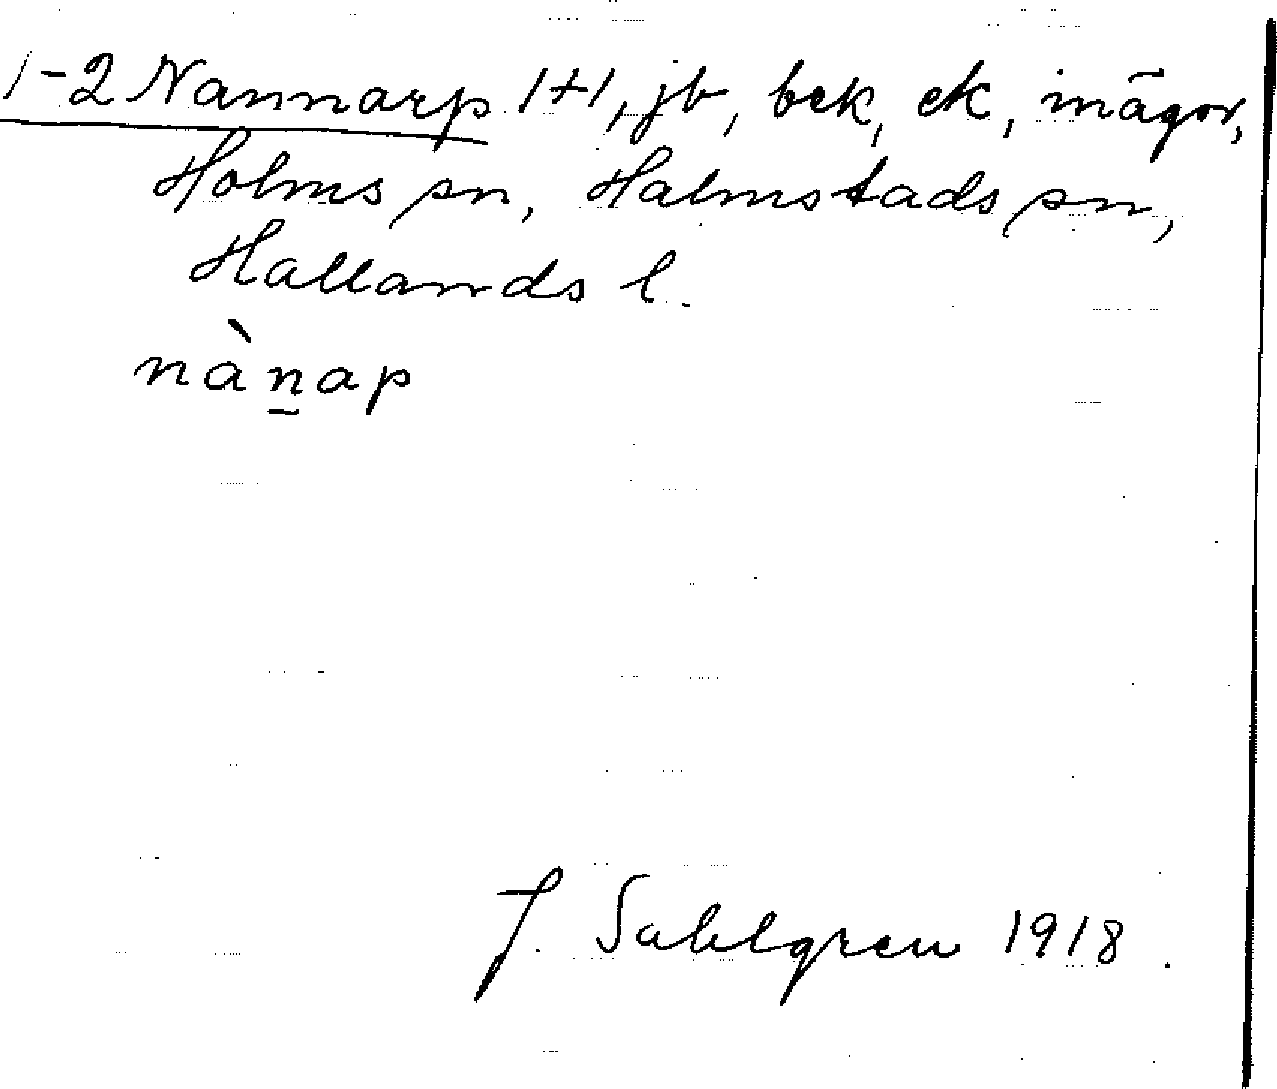 1-2 Nannarp 1+1, jb, bek, ek, inägor,
Holms sn, Halmstads sn,
Hallands l.
nàṉap
J. Sahlgren 1918.